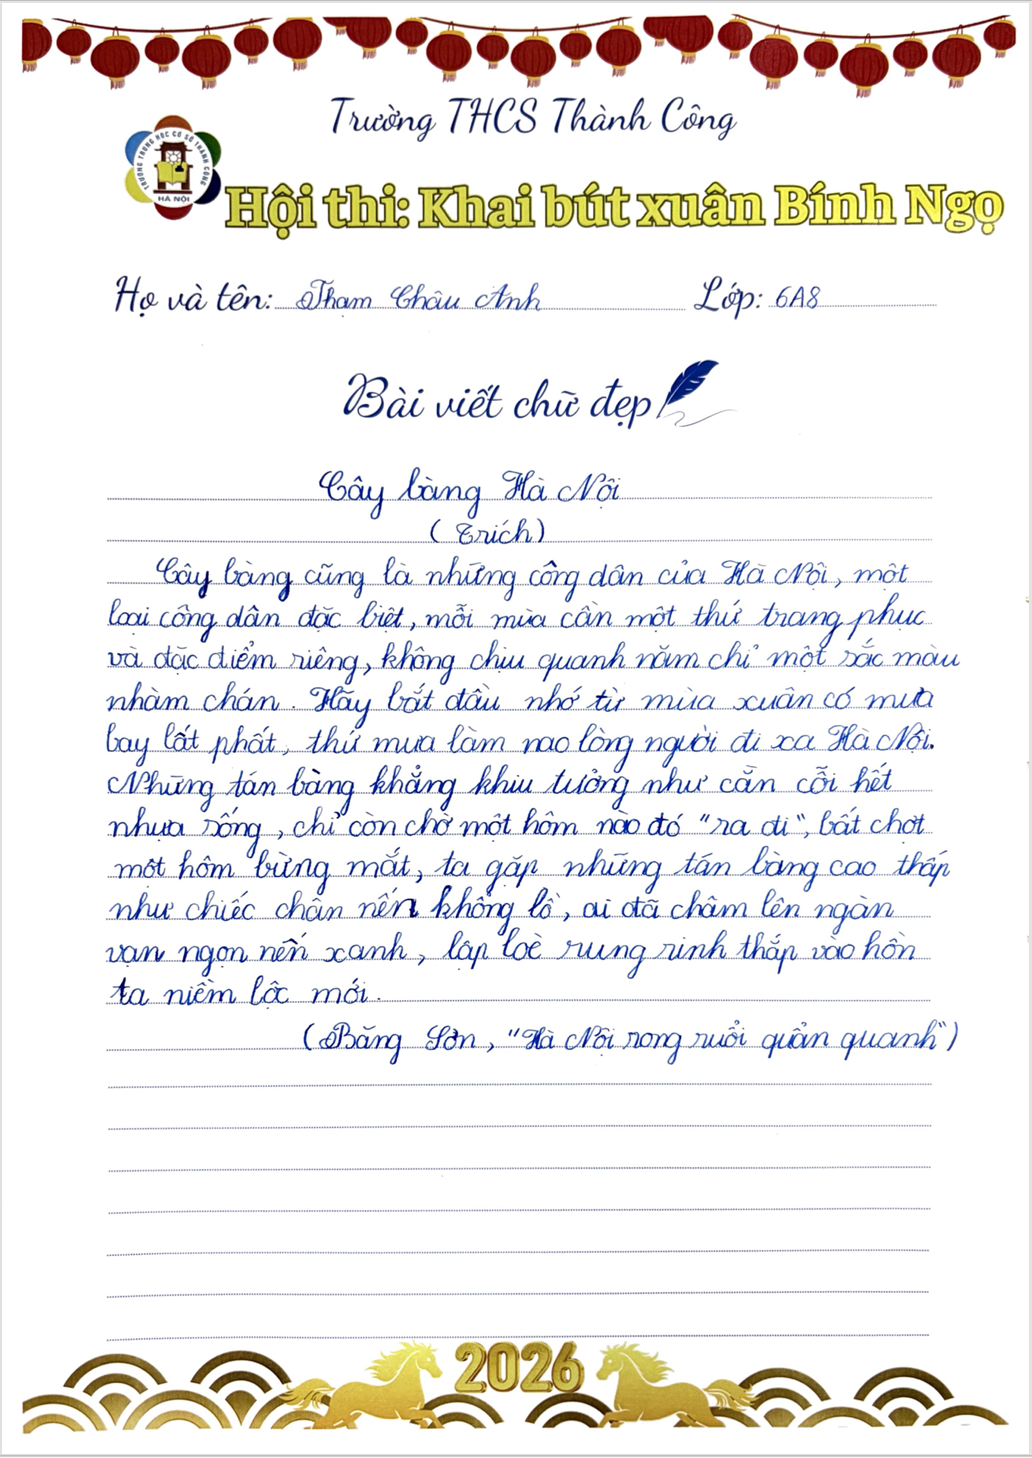 Trường THCS Thành Công
TRƯỜNG TRUNG HỌC CƠ SỞ THÀNH CÔNG
HÀ NỘI
Hội thi: Khai bút xuân Bính Ngọ
Họ và tên: Phạm Châu Anh Lớp: 6A8
Bài viết chữ đẹp
Cây bàng Hà Nội
(Trích)
Cây bàng cũng là những công dân của Hà Nội, một
loại công dân đặc biệt, mỗi mùa cần một thứ trang phục
và đặc điểm riêng, không chịu quanh năm chỉ một sắc màu
nhàm chán. Hãy bắt đầu nhớ từ mùa xuân có mưa
bay lất phất, thứ mưa làm nao lòng người đi xa Hà Nội.
Những tán bàng khẳng khiu tưởng như cằn cỗi hết
nhựa sống, chỉ còn chờ một hôm nào đó "ra đi", bất chợt
một hôm bừng mắt, ta gặp những tán bàng cao thấp
như chiếc chân nến khổng lồ, ai đã châm lên ngàn
vạn ngọn nến xanh, lập loè rung rinh thắp vào hồn
ta niềm lộc mới.
(Băng Sơn, "Hà Nội rong ruổi quẩn quanh")
2026